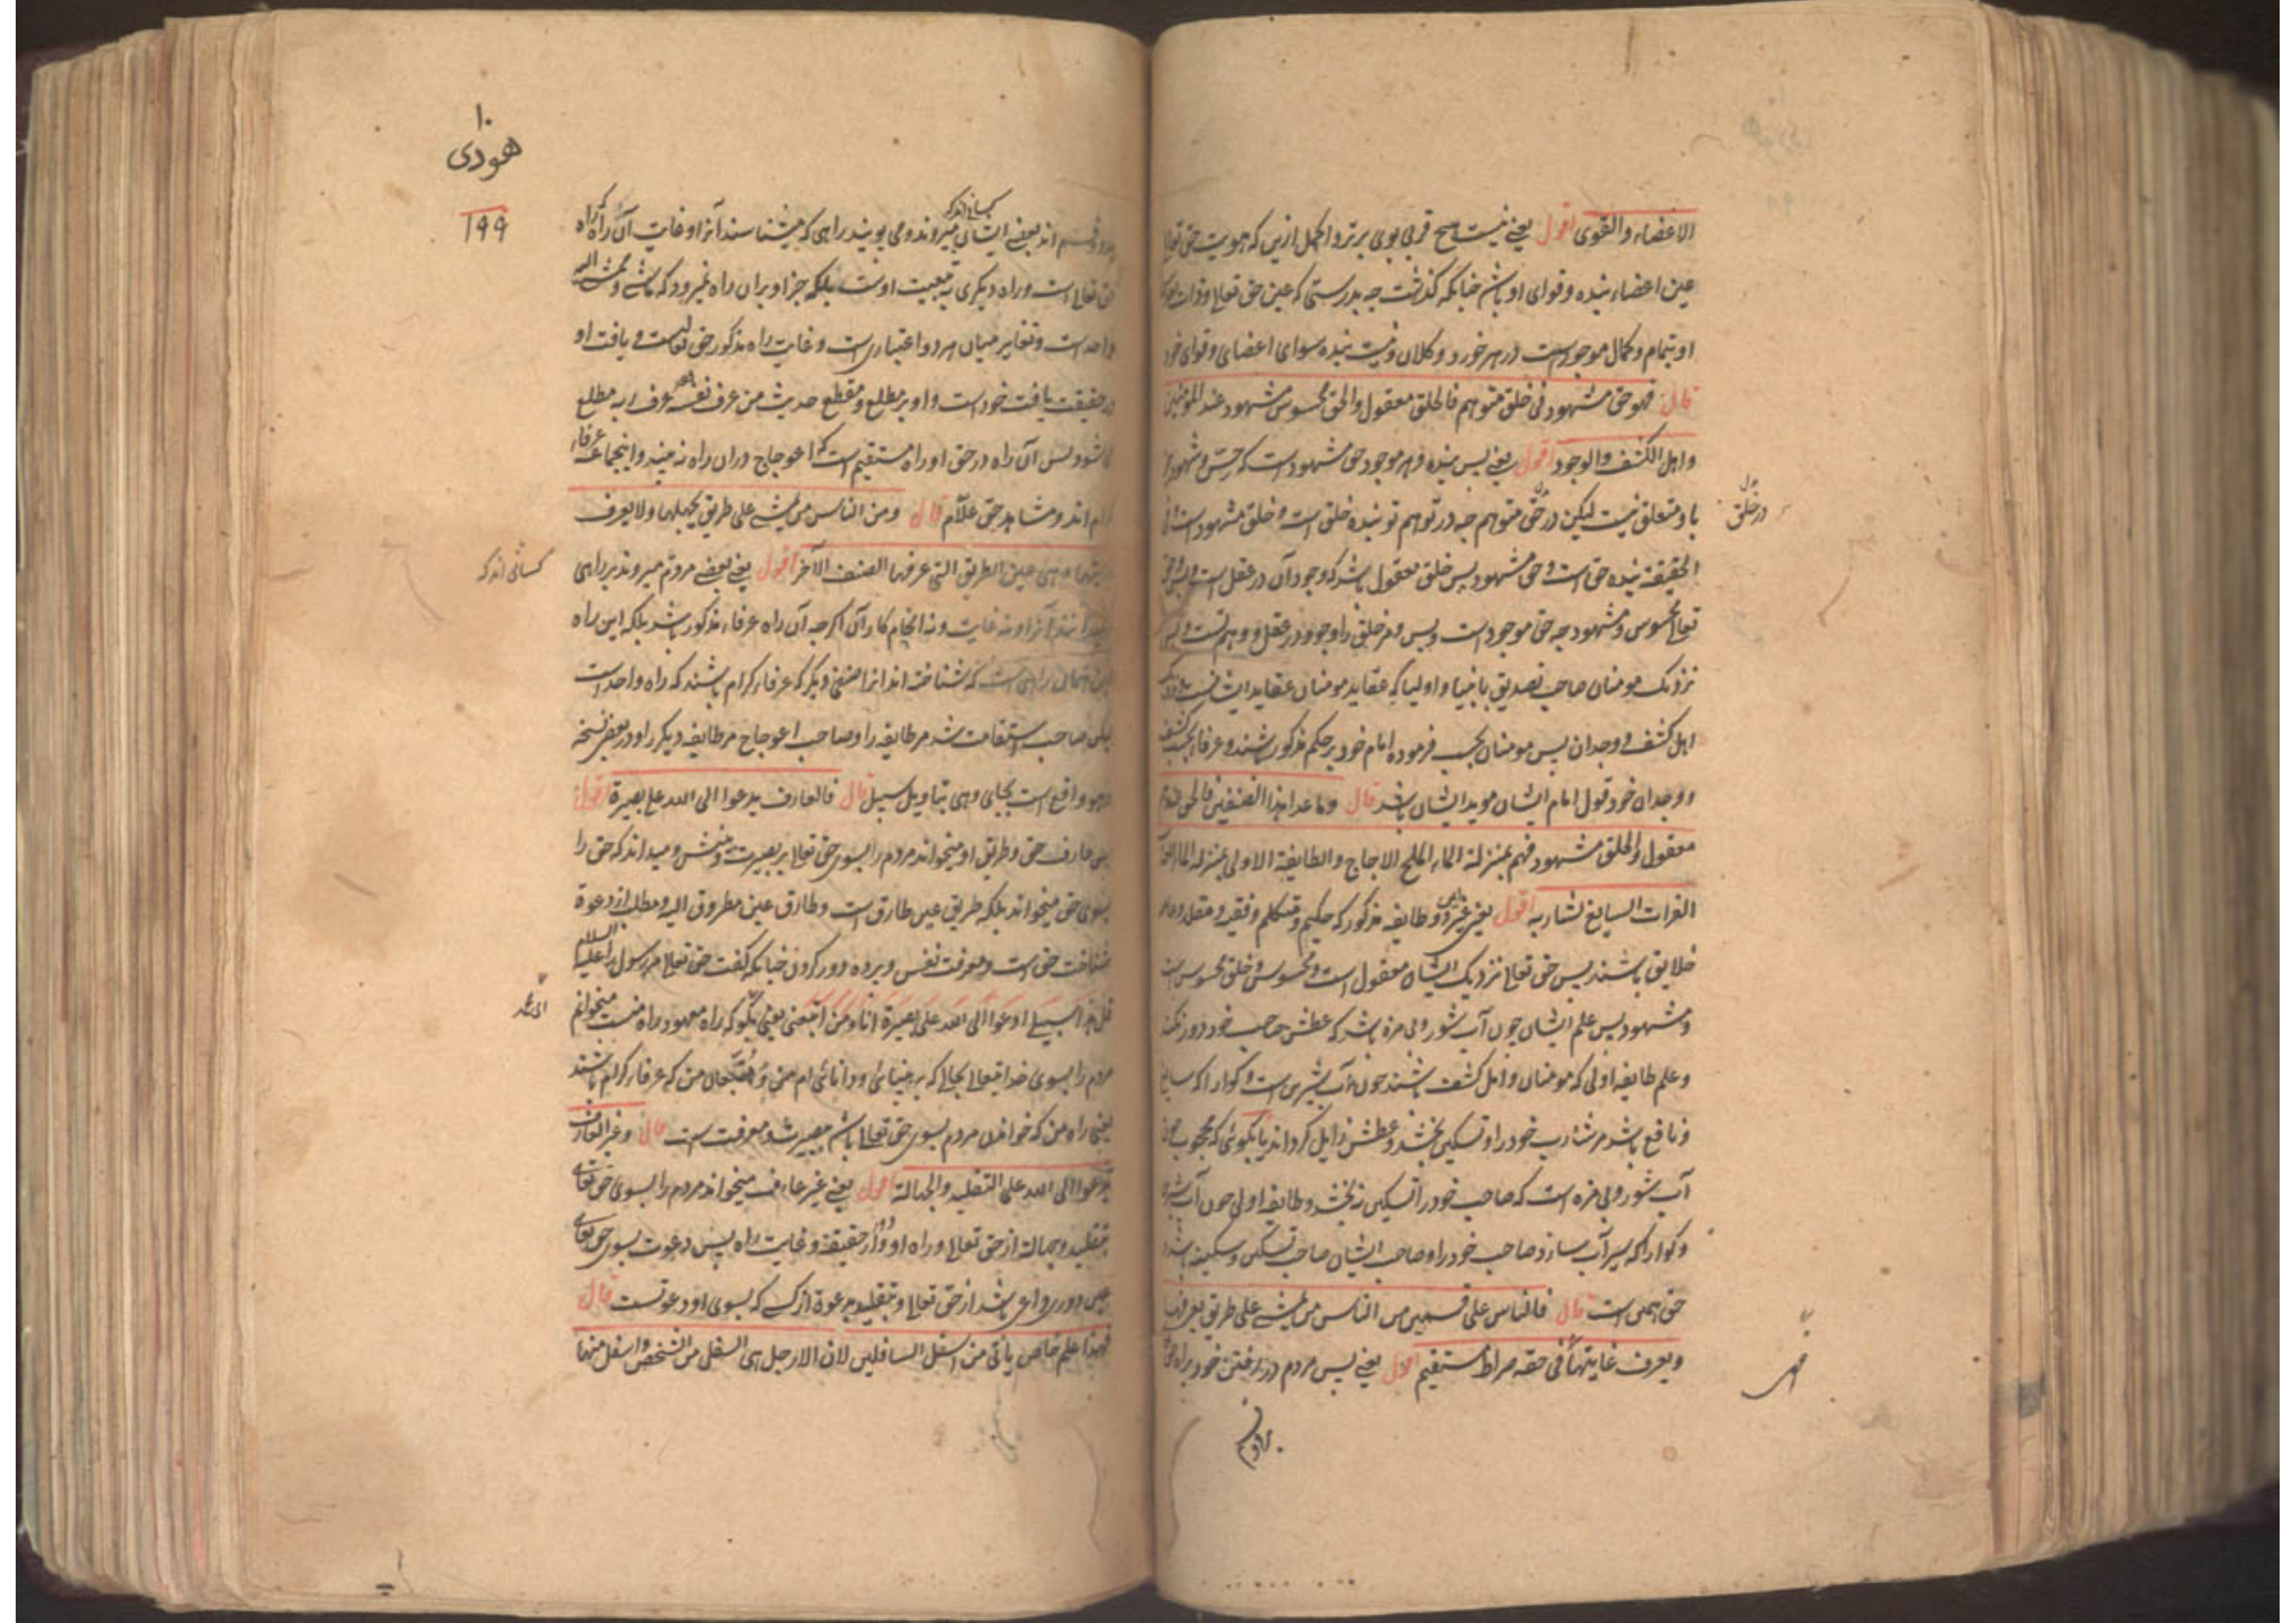 الاعضاء والقوی اقول یعنی نیست هیچ قربی بوی برتر و اکمل ازین که هویت حق تعالی
عین اعضاء بنده و قوای او باشد چنانکه گذشت چه بدرستی که عین حق تعالی و ذات او
او بتمام و کمال موجود است در هر خورد و کلان و نیست بنده سوای اعضای و قوای خود
قال فهو حق مشهود فی خلق متوهم فالخلق معقول والحق محسوس مشهود عند المؤمنین
واهل الکشف والوجود اقول یعنی پس بنده و هر موجود حق مشهود است که حس و شهود
باو متعلق نیست لیکن در حق متوهم چه در توهم تو بنده خلق است و خلق مشهود است
در خلق
الحقیقة بنده حق است و حق مشهود پس خلق معقول باشد که وجود آن در عقل است
تعالی محسوس و مشهود چه حق موجود است و بس و هر خلق را وجود در عقل و وهم تست
نزدیک مومنان صاحب تصدیق بانبیا و اولیا که عقاید مومنان عقاید ایشانست
اهل کشف و وجدان پس مومنان بحسب فرموده امام خود بر حکم مذکور باشند و عرفا بحسب کشف
و وجدان خود قول امام ایشان موید ایشان باشد قال وما عدا هذا الصنفین فالحق عندهم
معقول والخلق مشهود فهم بمنزلة الماء الملح الاجاج والطایفة الاولی بمنزلة الماء العذب
الفرات السایغ لشاربه اقول یعنی غیر دو طایفه مذکور که حکیم و متکلم و فقیه و مقلد
خلایق باشند پس حق تعالی نزدیک ایشان معقول است و محسوس و خلق محسوس است
و مشهود پس علم ایشان چون آب شور و بی مزه باشد که عطش صاحب خود دور نکند
و علم طایفه اولی که مومنان و اهل کشف باشند چون آب شیرین است و گوارا که سایغ
و نافع باشد مر شارب خود را و تسکین بخشد و عطش زایل گرداند یا بگوئی که محجوب چون
آب شور و بی مزه است که صاحب خود را تسکین نه بخشد و طایفه اولی چون آب شیرین
و گوارا که سیرآب سازد صاحب خود را و صاحب ایشان صاحب تسکین و سکینه باشد
حق همین است قال فالناس علی قسمین من الناس من یمشی علی طریق یعرفها
ویعرف غایتها فی حقه صراط مستقیم اقول یعنی پس مردم در رفتن خود براه حق
فهی
بر دو
۱۰
هودی
۱۹۹
کسانی اند که
بر دو قسم اند بعضی ایشان میروند و می پویند براهی که میشناسند آنرا و غایت آن راه را
حق تعالی است و راه دیگری به تبعیت اوست بلکه جز او بران راه نمیرود که ماشی و ممشی الیه
واحد است و تغایر میان هر دو اعتباری است و غایت راه مذکور حق تعالی است و یافت او
در حقیقت یافت خود است و او بر مطلع و مقطع حدیث من عرف نفسه عرف ربه مطلع
باشد پس آن راه در حق او راه مستقیم است که اعوجاج دران راه نه بیند و اینجماعه عرفاء
کرام اند و مشاهد حق علام قال ومن الناس من یمشی علی طریق یجهلها ولا یعرف
غایتها وهی عین الطریق التی عرفها الصنف الآخر اقول یعنی بعضی مردم میروند براهی
کسانی اند که
نمیدانند آنرا و نه غایت و نه انجام کار آن اگرچه آن راه عرفاء مذکور باشد بلکه این راه
همان راهی است که شناخته اند انرا صنفی دیگر که عرفاء کرام باشند که راه واحد است
لیکن صاحب استقامت شد مر طایفه را و صاحب اعوجاج مر طایفه دیگر را و در بعض نسخه
وهو واقع است بجای وهی بتاویل سبیل قال فالعارف یدعوا الی الله علی بصیرة اقول
یعنی عارف حق و طریق او میخواند مردم را بسوی حق تعالی بر بصیرت و بینش و میداند که حق را
بسوی حق میخواند بلکه طریق عین طارق است و طارق عین مطروق الیه و مطلب از دعوة
شناخت حق است و معرفت نفس و پرده دور کردن چنانکه گفت حق تعالی مر رسول را علیه السلام
قل هذا سبیلی ادعوا الی الله علی بصیرة انا ومن اتبعنی یعنی بگو که راه معهود راه منست میخوانم
مردم را بسوی خدا تیعالی بحالی که بر بینائی و دانائی ام من و متبعان من که عرفاء کرام باشند
یعنی راه من که خواندن مردم بسوی حق تعالی باشد بصیرت و معرفت است قال وغیر العارف
یدعوا الی الله علی التقلید والجهالة اقول یعنی غیر عارف میخواند مردم را بسوی حق تعالی
بتقلید و جهالة از حق تعالی و راه او و از حقیقة و غایت راه پس دعوت بسوی حق تعالی
عین دوری داعی باشد از حق تعالی و بتقلید بدعوة از کسی که بسوی او دعوتست قال
فهذا علم خاص یأتی من اسفل السافلین لان الارجل هی السفل من الشخص واسفل منها